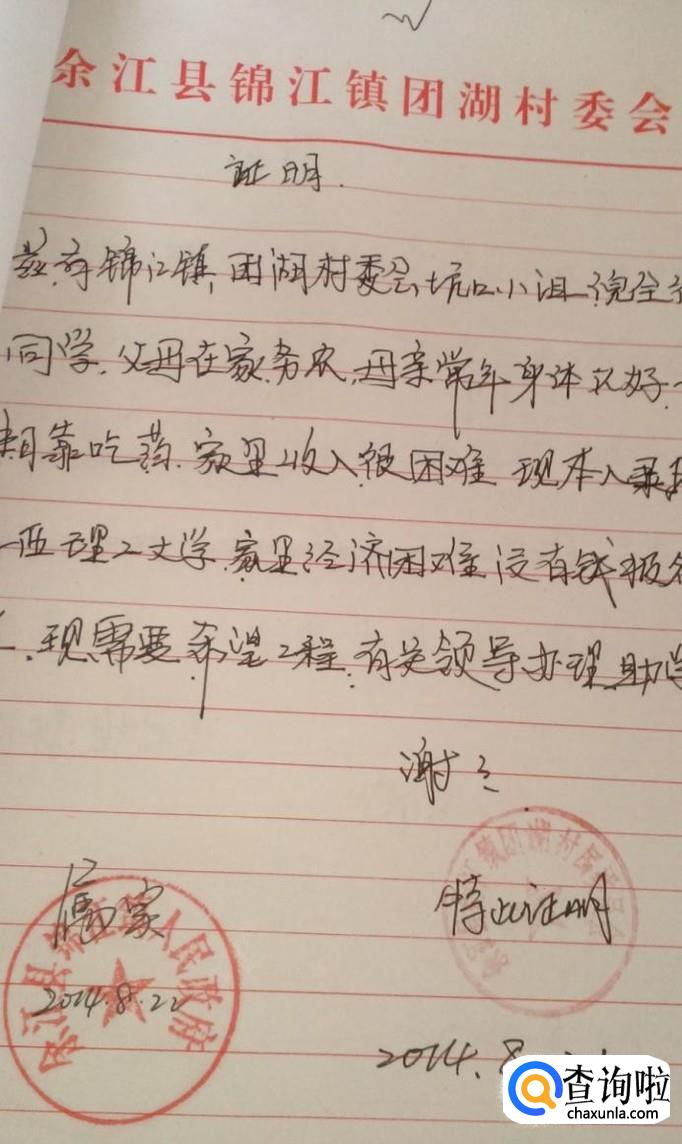 余江县锦江镇团湖村委会
证明.
兹有锦江镇,团湖村委会坑口小组倪全
同学.父母在家务农,母亲常年身体不好.
期靠吃药.家里收入很困难 现本人录
西理工大学.家里经济困难没有钱报名
.现需要希望工程.有关领导办理助学
谢谢
属实
特此证明
江镇团湖村民委员会
余江县锦江镇人民政府
2014.8.22
2014.8
查询啦
chaxunla.com